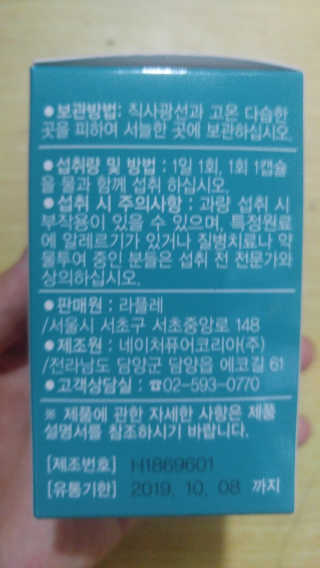 ●보관방법: 직사광선과 고온 다습한
곳을 피하여 서늘한 곳에 보관하십시오.
●섭취량 및 방법 : 1일 1회, 1회 1캡슐
을 물과 함께 섭취 하십시오.
●섭취 시 주의사항 : 과량 섭취 시
부작용이 있을 수 있으며, 특정원료
에 알레르기가 있거나 질병치료나 약
물투여 중인 분들은 섭취 전 전문가와
상의하십시오.
●판매원 : 라플레
/서울시 서초구 서초중앙로 148
●제조원 : 네이처퓨어코리아(주)
/전라남도 담양군 담양읍 에코길 61
●고객상담실 : ☎02-593-0770
※ 제품에 관한 자세한 사항은 제품
설명서를 참조하시기 바랍니다.
[제조번호] H1869601
[유통기한] 2019. 10. 08 까지